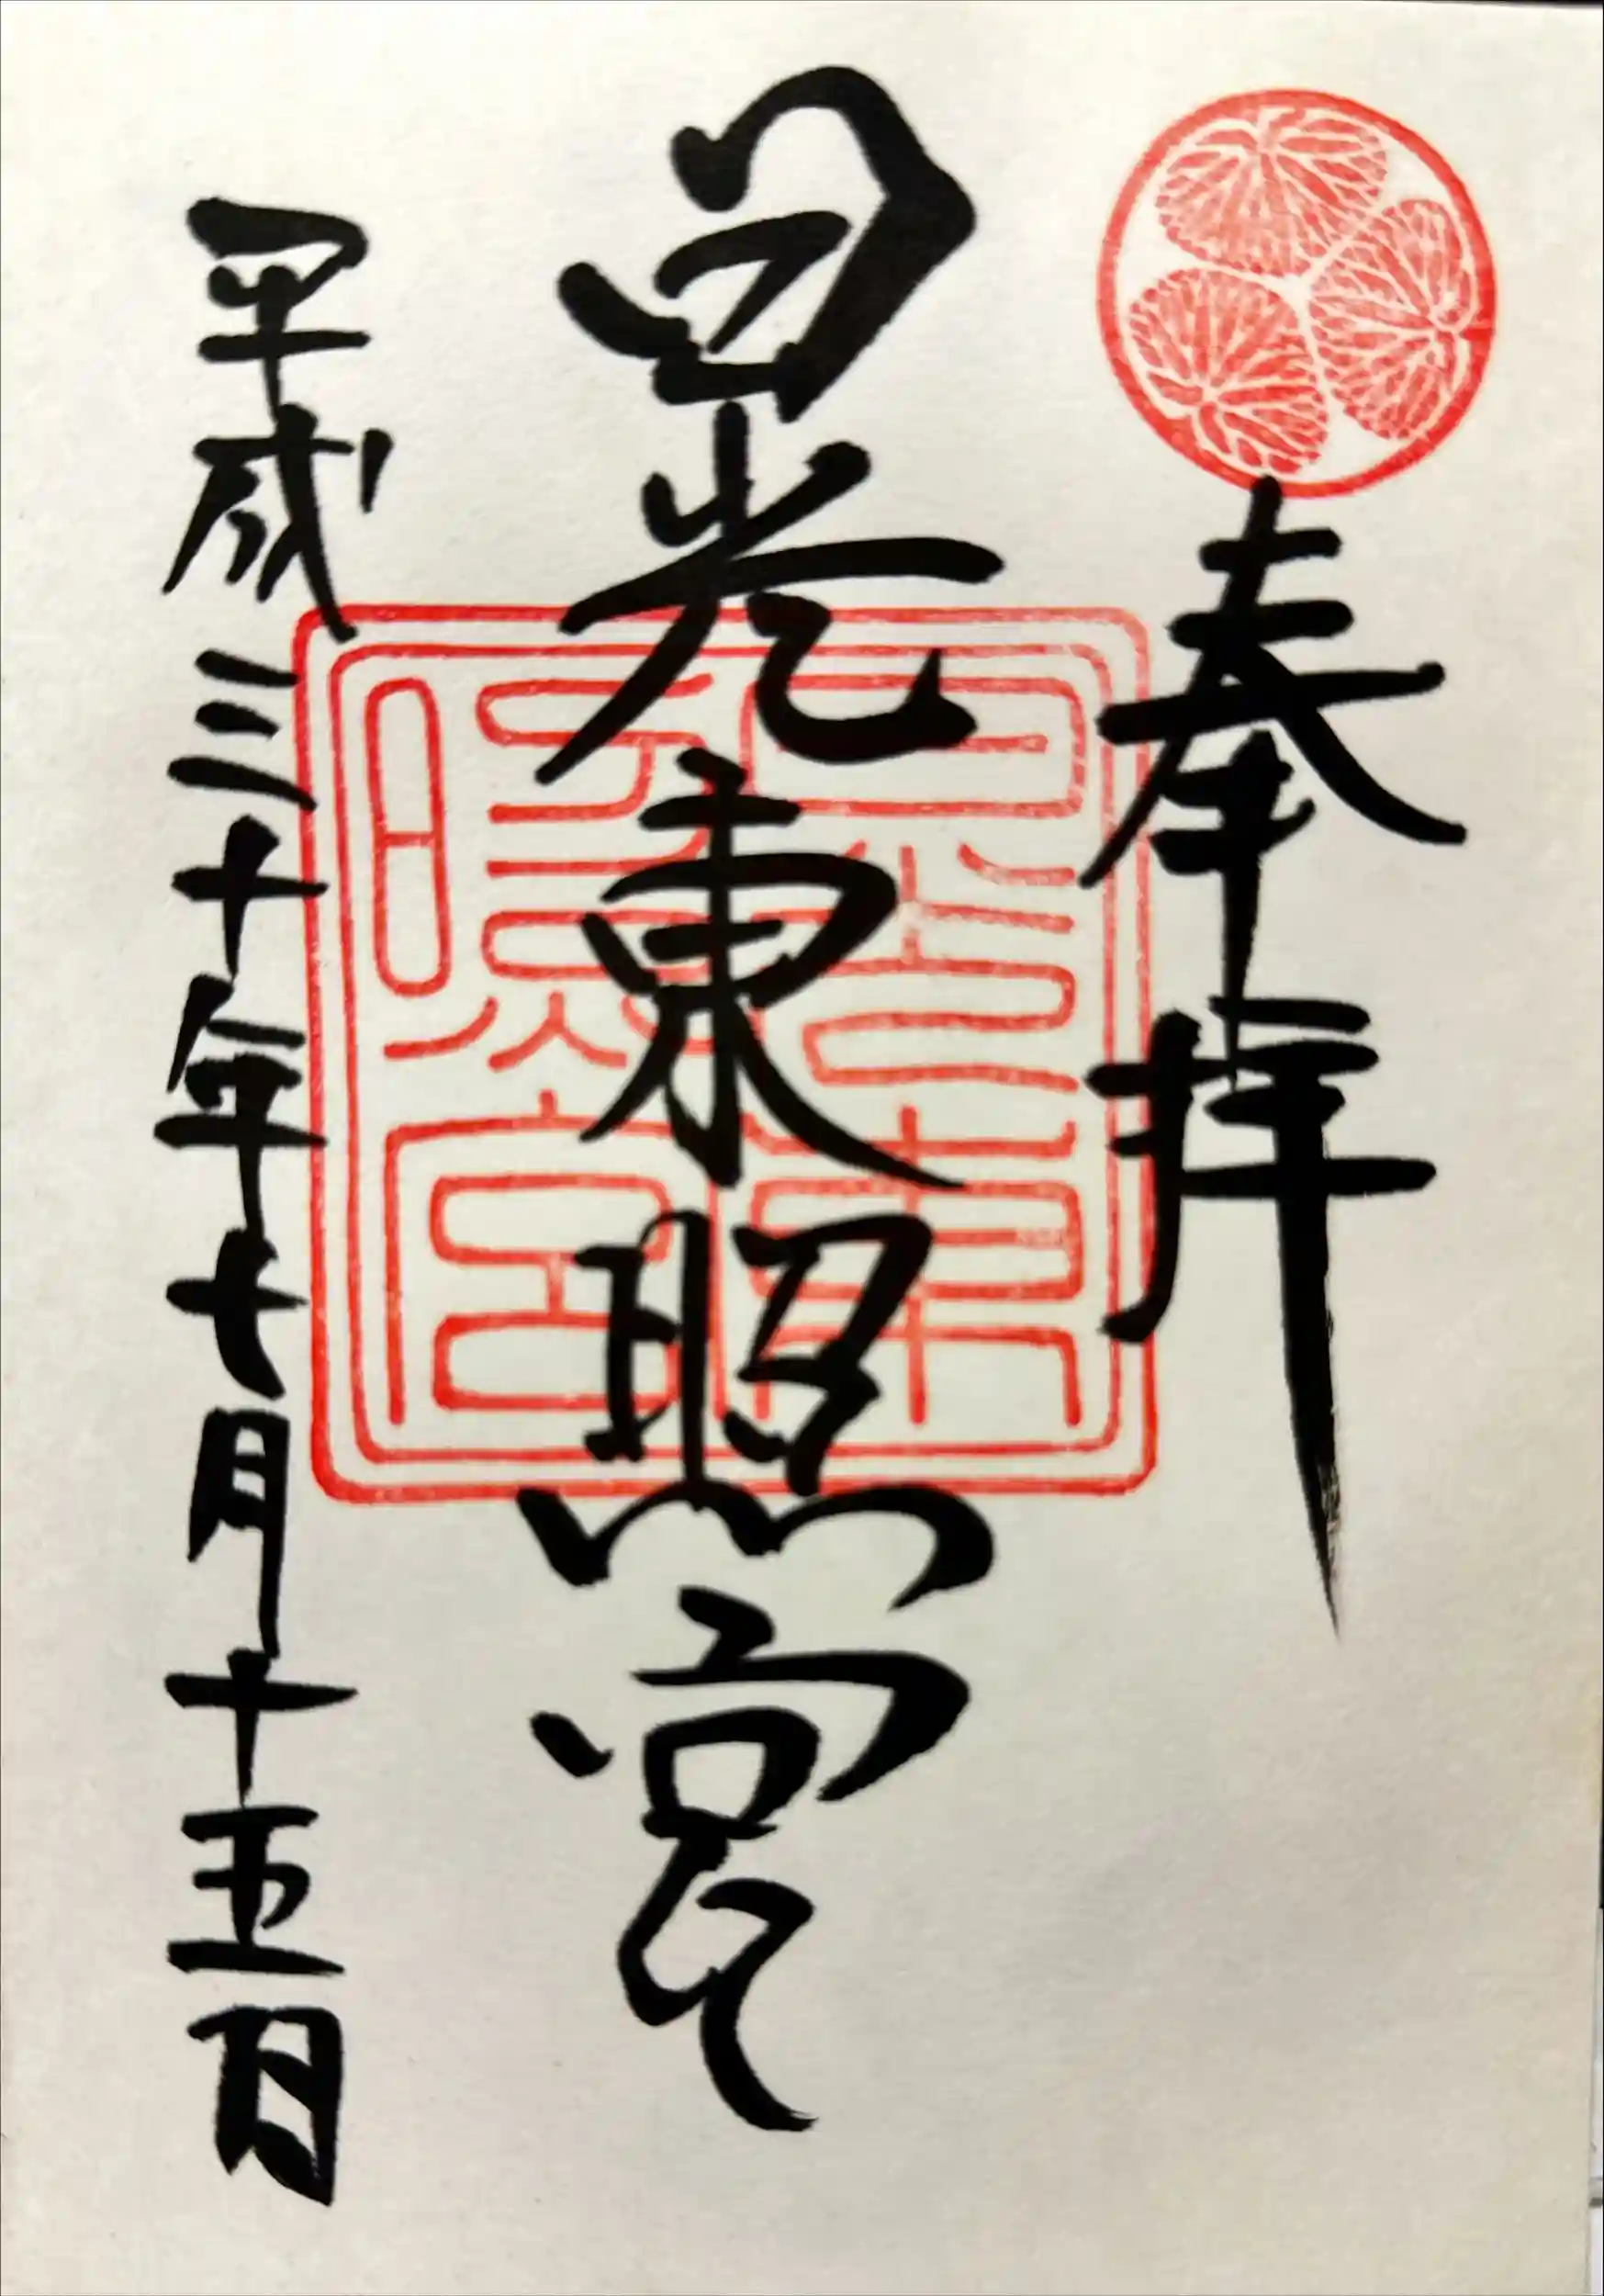 奉拝
日光東照宮
平成三十年七月十五日
日光東照宮